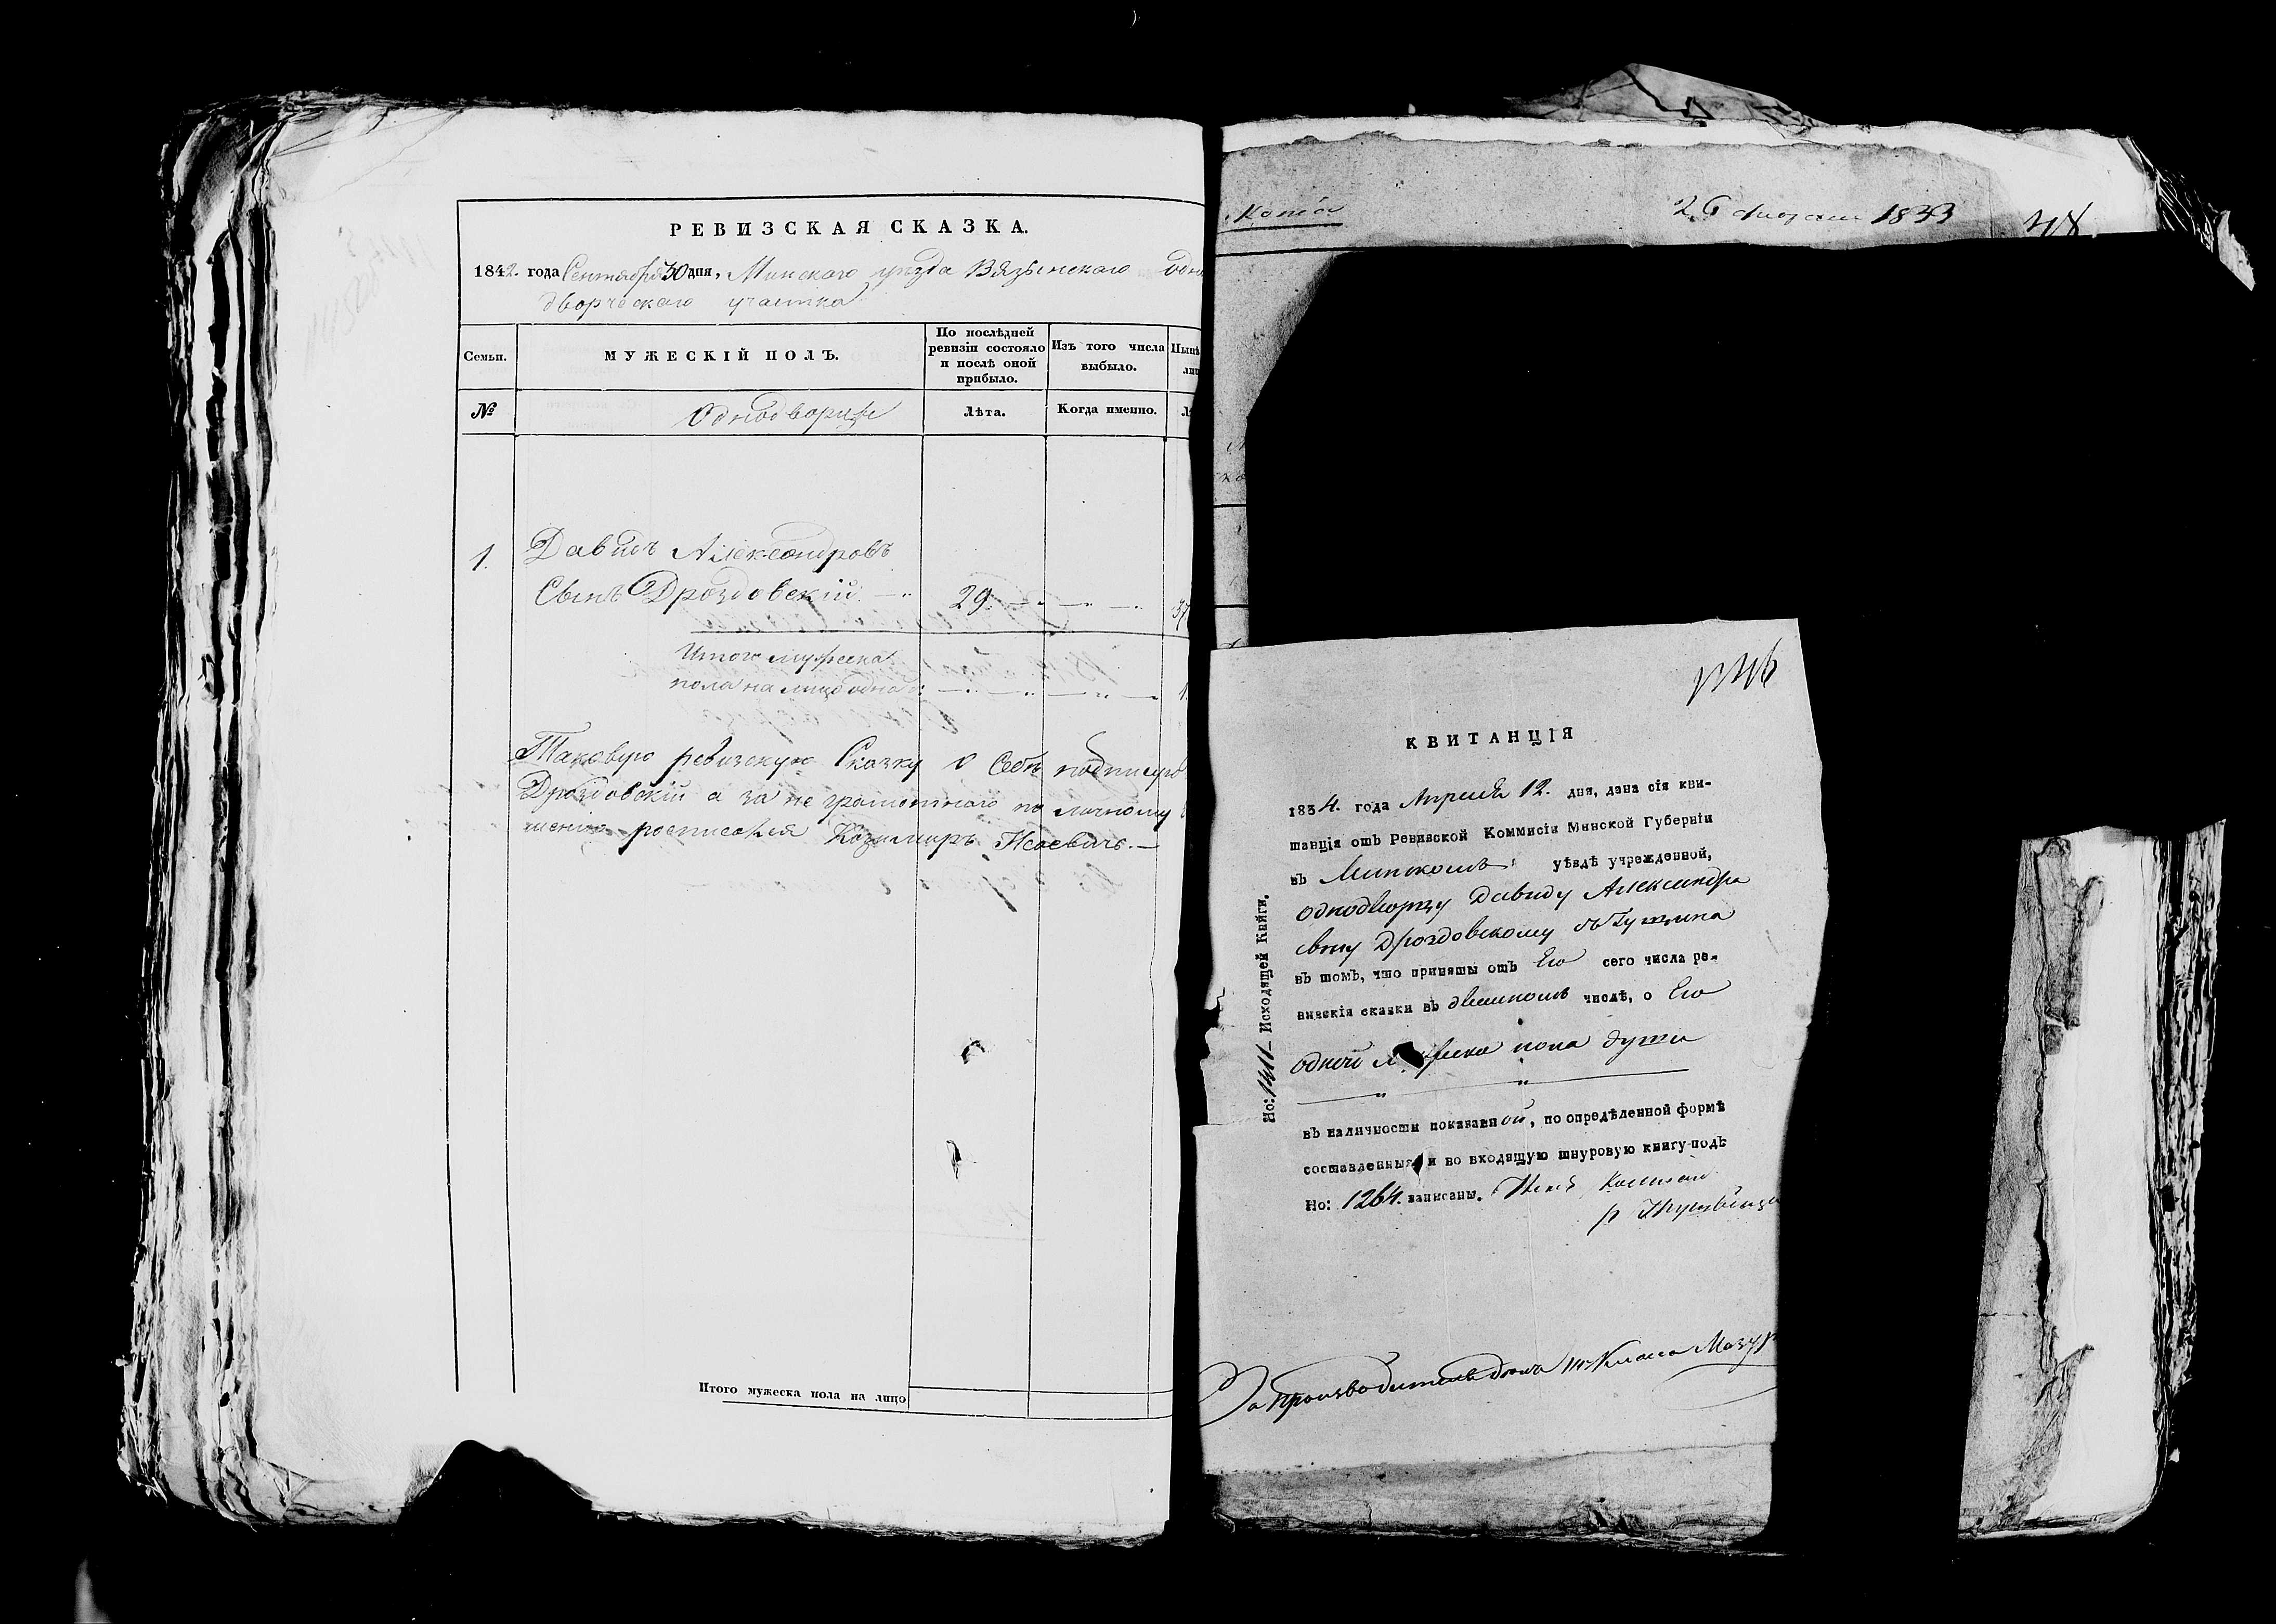 РЕВИЗСКАЯ СКАЗКА.
1842. года Сентября 30 дня, Минскаго уѣзда Вязынскаго одно
дворческаго участка
Семьи.
МУЖЕСКІЙ ПОЛЪ.
По послѣдней
ревизіи состояло
и послѣ оной
прибыло.
Изъ того числа
выбыло.
Нынѣ
№
Однодворцы
Лѣта.
Когда именно.
1. Давидъ Александровъ
Сынъ Дроздовскій 29 37
Итого мужеска
пола на лицо одна 1
Таковую ревизскую Сказку о Себѣ подписую
Дроздовскій а за не грамотнаго по личному
росписался Козимиръ Исаевичъ.—
Итого мужеска пола на лицо
Копія
26 1833
КВИТАНЦІЯ
1834. года Апреля 12. дня, дана сія кви-
танція отъ Ревизской Коммисіи Минской Губерніи
въ Минскомъ уѣздѣ учрежденной,
однодворцу Давиду Александра
сыну Дроздовскому
въ томъ, что приняты отъ Его сего числа ре-
визскія сказки въ двоиномъ числѣ, о Его
одной пола души
въ наличности показанной, по опредѣленной формѣ
составленныя и во входящую шнуровую книгу подъ
Но: 1264. записаны.
Но: 1411 Исходящей Книги.
За производителя дѣлъ 14 Класса Мазур